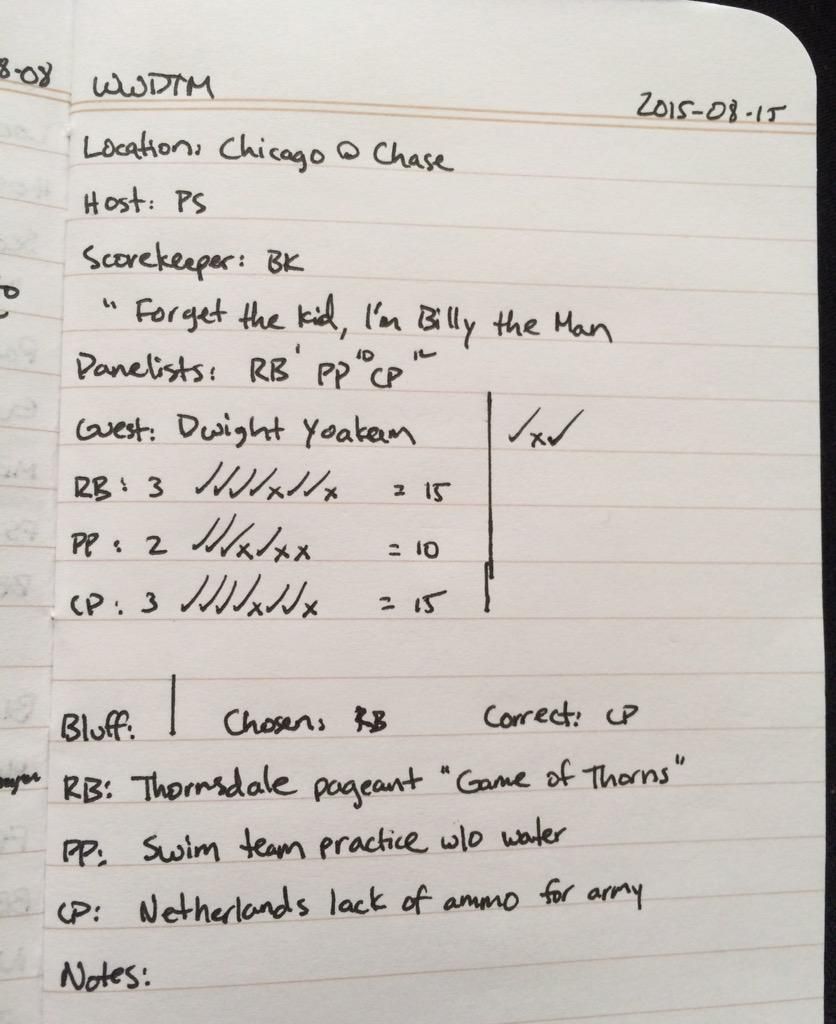 8-08
WWDTM
2015-08-15
Location: Chicago @ Chase
Host: PS
Scorekeeper: BK
" Forget the kid, I'm Billy the Man
Panelists: RB 1 PP 10 CP 12
Guest: Dwight Yoakam ✓x✓
RB: 3 ✓✓✓✓x✓✓x = 15
PP: 2 ✓✓✓x✓xx = 10
CP: 3 ✓✓✓✓x✓✓x = 15
Bluff: | Chosen: RB Correct: CP
RB: Thornsdale pageant "Game of Thorns"
PP: Swim team practice w/o water
CP: Netherlands lack of ammo for army
Notes: